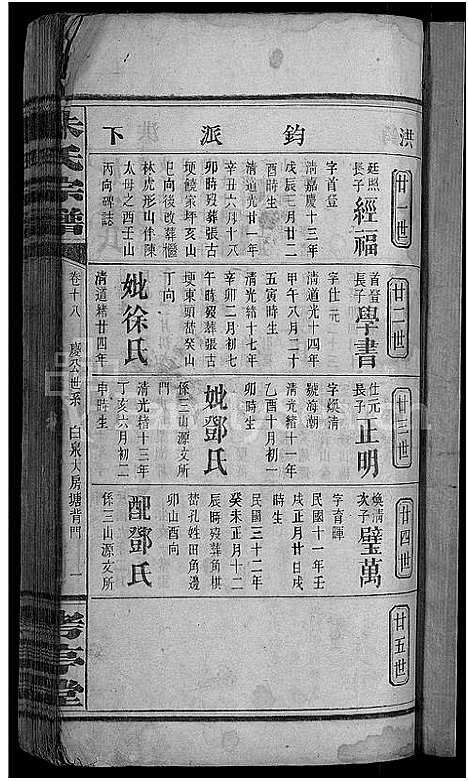 洪鈞派下
廿一世
廷照長子
經福
字首登
清嘉慶十三年
戊辰三月廿二
酉時生
清道光廿一年
辛丑六月十八
卯時歿葬張古
埂頭宋坪亥山
巳向後改葬
林虎形山伴陳
太母之西子山
丙向碑誌
廿二世
首登長子
學書
字仕元
清道光十四年
甲午八月二十
五寅時生
清光緒十七年
辛卯二月初七
午時歿葬張古
埂東頭嵆癸山
丁向
妣徐氏
清道緒廿四年
廿三世
仕元長子
正明
字煥清
號海湖
清光緒十一年
乙酉十月初一
卯時生
妣鄧氏
係三山源文所
門
清光緒十三年
丁亥六月初二
申時生
廿四世
煥清次子
璧萬
字育暉
民國十一年壬
戌正月廿日戌
時生
民國三十二年
癸未正月十二
辰時歿葬角棋
嵆孔姓田角邊
卯山酉向
配鄧氏
係三山源文所
廿五世
朱氏宗譜
卷十八
慶公世系
白泉大房塘背門
一
考亭堂